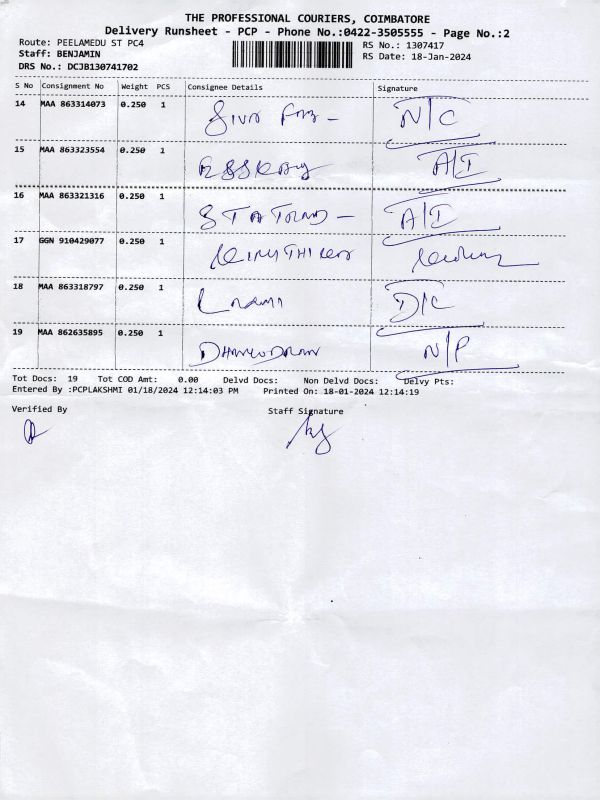 THE PROFESSIONAL COURIERS, COIMBATORE
Delivery Runsheet - PCP - Phone No.:0422-3505555 - Page No.:2
Route: PEELAMEDU ST PC4
RS No.: 1307417
Staff: BENJAMIN
RS Date: 18-Jan-2024
DRS No.: DCJB130741702
S No Consignment No Weight PCS Consignee Details Signature
14 MAA 863314073 0.250 1 N/C
15 MAA 863323554 0.250 1 A/I
16 MAA 863321316 0.250 1 A/I
17 GGN 910429077 0.250 1
18 MAA 863318797 0.250 1 D/C
19 MAA 862635895 0.250 1 N/P
Tot Docs: 19 Tot COD Amt: 0.00 Delvd Docs: Non Delvd Docs: Delvy Pts:
Entered By :PCPLAKSHMI 01/18/2024 12:14:03 PM Printed On: 18-01-2024 12:14:19
Verified By Staff Signature